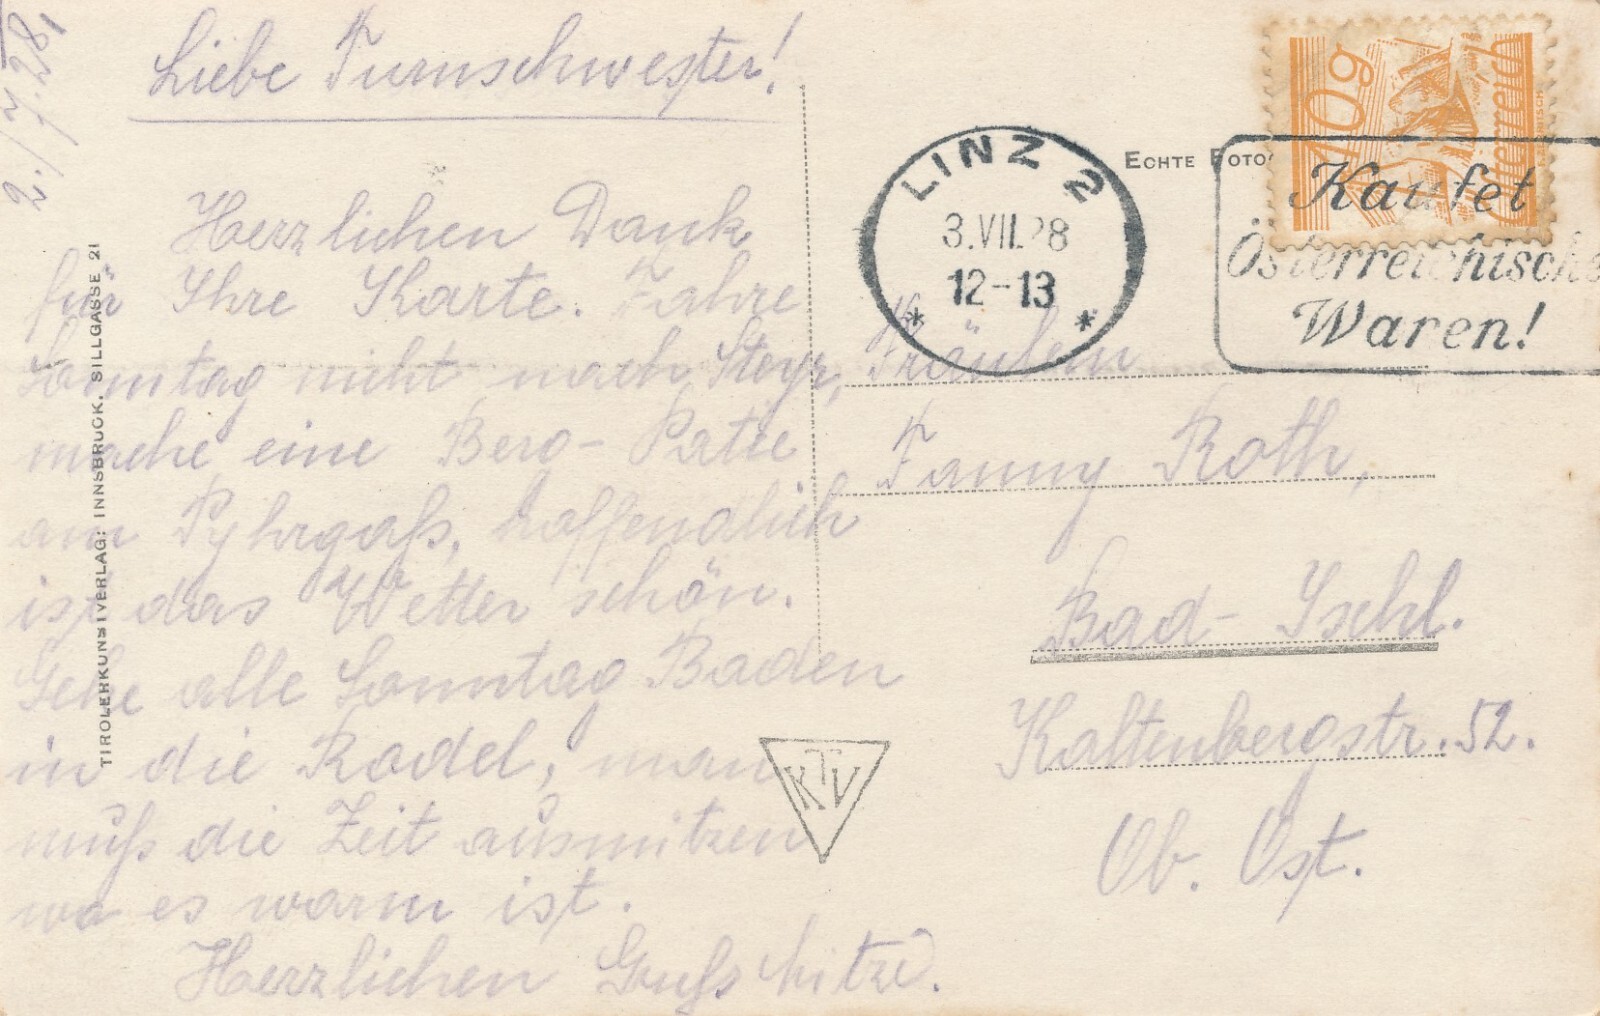 2./7.28.
Liebe Turnschwester!
Herzlichen Dank
für Ihre Karte. Fahre
Sonntag nicht nach Steyr,
mache eine Berg-Patie
am Pyhrgaß, hoffendlich
ist das Wetter schön.
Gehe alle Sonntag Baden
in die Rodel, man
muß die Zeit ausnützen
wo es warm ist.
Herzlichen Gruß Mitzi.
TIROLERKUNSTVERLAG: INNSBRUCK, SILLGASSE 21
KTV
ECHTE FOTO
10g
Österreich
LINZ 2
3.VII.28
12-13
* *
Kaufet
Österreichische
Waren!
Fräulein
Fanny Roth,
Bad-Ischl.
Kaltenbergstr. 52.
Ob. Öst.